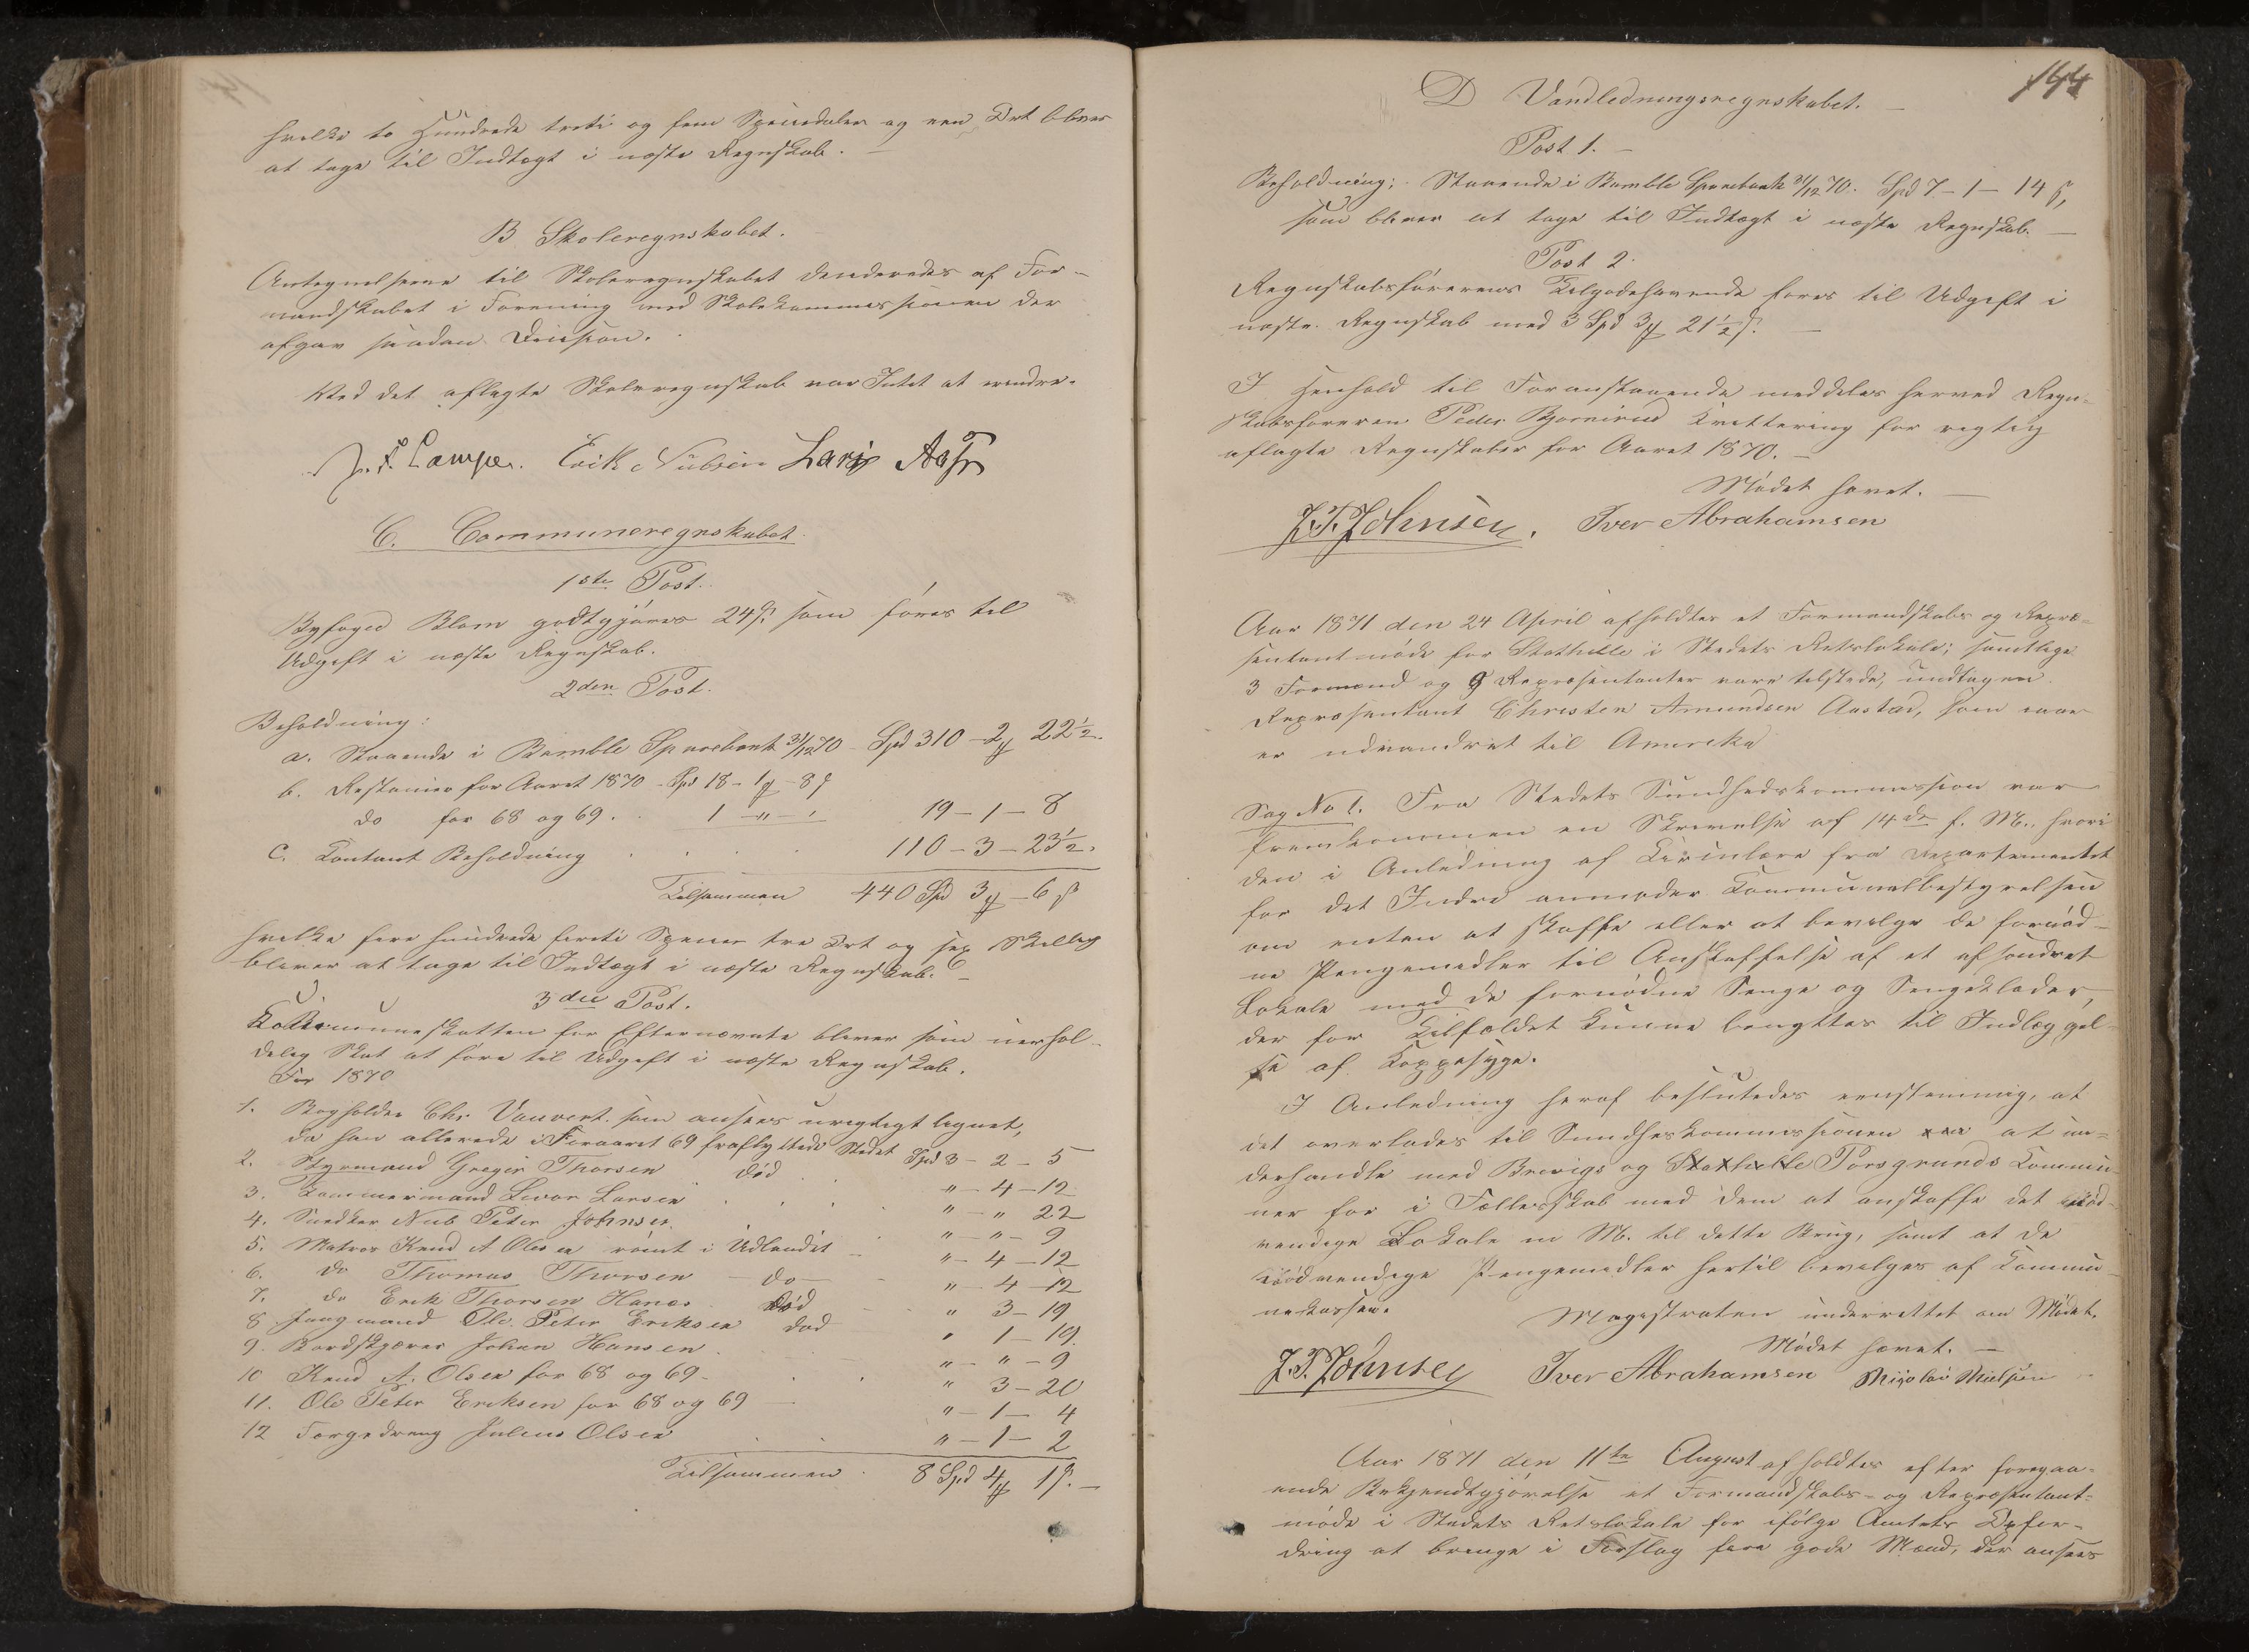 hvilke to Hundrede treti og fem Speciedaler og een Ort bliver
at tage til Indtægt i næste Regnskab. —
B Skoleregnskabet.
Antegnelserne til Skoleregnskabet decideredes af For-
mandskabet i Forening med Skolekommissionen der
afgav saadan Decision.
Ved det aflagte Skoleregnskab var Intet at erindre.
Erik Nielsen Lars
C. Communeregnskabet.
1ste Post.
Byfoged Blom godtgjøres 24 ß som føres til
Udgift i næste Regnskab.
2den Post.
Beholdning:
a. Staaende i Bamble Sparebank 31/12 70 Spd 310 - 2 - 22½.
b. Restancer for Aaret 1870 - Spd 18 - 1 - 8 ß
do for 68 og 69. 1 - " - " 19 - 1 - 8
C. Contant Beholdning . . . 110 - 3 - 23½.
Tilsammen 440 Spd 3 - 6 ß
hvilke fire hundrede firti Species tre Ort og sex Skilling
bliver at tage til Indtægt i næste Regnskab. —
3die Post.
Kommuneskatten for Efternævnte bliver som uerhol-
delig Skat at føre til Udgift i næste Regnskab.
For 1870
1. Bogholder Chr som ansees urigtigt lignet,
da han allerede i Foraaret 69 fraflyttede Stedet Spd 3 - 2 - 5
2. Styrmand Greger Thorsen død " - 4 - 12
3. Tømmermand Livor Larsen . . . " - " 22
4. Snedker Niels Peter Johnsen . " - " - 9
5. Matros Knud A Olsen rømt i Udlandet - " - 4 - 12
6. do Thomas Thorsen - do - " - 4 - 12
7. do Erik Thorsen Hanes død " 3 - 19
8 Jungmand Ole Peter Eriksen død " 1 - 19.
9. Bordskjærer Johan Hansen . " - " - 9
10 Knud A. Olsen for 68 og 69 - " 3 - 20
11. Ole Peter Eriksen for 68 og 69 - " - 1 - 4
12 Julius Olsen . . " - 1 - 2
Tilsammen . 8 Spd 4 1 ß. -
144
D Vandledningsregnskabet. —
Post 1. —
Beholdning: Staaende i Bamble Sparebank 31/12 70. Spd 7 - 1 - 14 ß,
som bliver at tage til Indtægt i næste Regnskab. —
Post 2.
Regnskabsførerens Tilgodehavende føres til Udgift i
næste Regnskab med 3 Spd 3 21½ ß. —
I Henhold til Foranstaaende meddeles herved Regn-
skabsføreren Peder Kvittering for rigtig
aflagte Regnskaber for Aaret 1870. —
Mødet hævet. —
J.P. Johnsen. Iver Abrahamsen
Aar 1871 den 24 April afholdtes et Formandskabs og Repræ-
sentantmøde for Stathelle i Stedets Retslokale; samtlige
3 Formænd og 9 Repræsentanter vare tilstede, undtagen
Repræsentant Christen Amundsen Aastad, som
er udvandret til Amerika
Sag No 1. Fra Stedets Sundhedskommission var
fremkommen en Skrivelse af 14de f. M., hvori
den i Anledning af Circulære fra Departementet
for det Indre anmoder Communalbestyrelsen
om enten at skaffe eller at bevilge de fornød-
ne Pengemidler til Anskaffelse af et afsondret
Lokale med de fornødne Senge og Sengeklæder,
der for Tilfældet kunne benyttes til Indlæggel-
se af Koppesyge.
I Anledning heraf besluttedes eenstemmig, at
det overlades til Sundhedskommissionen at un-
derhandle med Brevigs og Stathelle Porsgrunds Commu-
ner for i Fællesskab med dem at anskaffe det nød-
vendige Lokale m M. til dette Brug, samt at de
nødvendige Pengemidler hertil bevilges af Commu-
nekassen.
Magistraten underrettet om Mødet.
Mødet hævet. —
J.P. Johnsen Iver Abrahamsen Nicolai Nielsen
Aar 1871 den 11te August afholdtes efter foregaa-
ende Bekjendtgjørelse et Formandskabs- og Repræsentant-
møde i Stedets Retslokale for ifølge Amtets Opfor-
dring at bringe i Forslag fire gode Mænd, der ansees